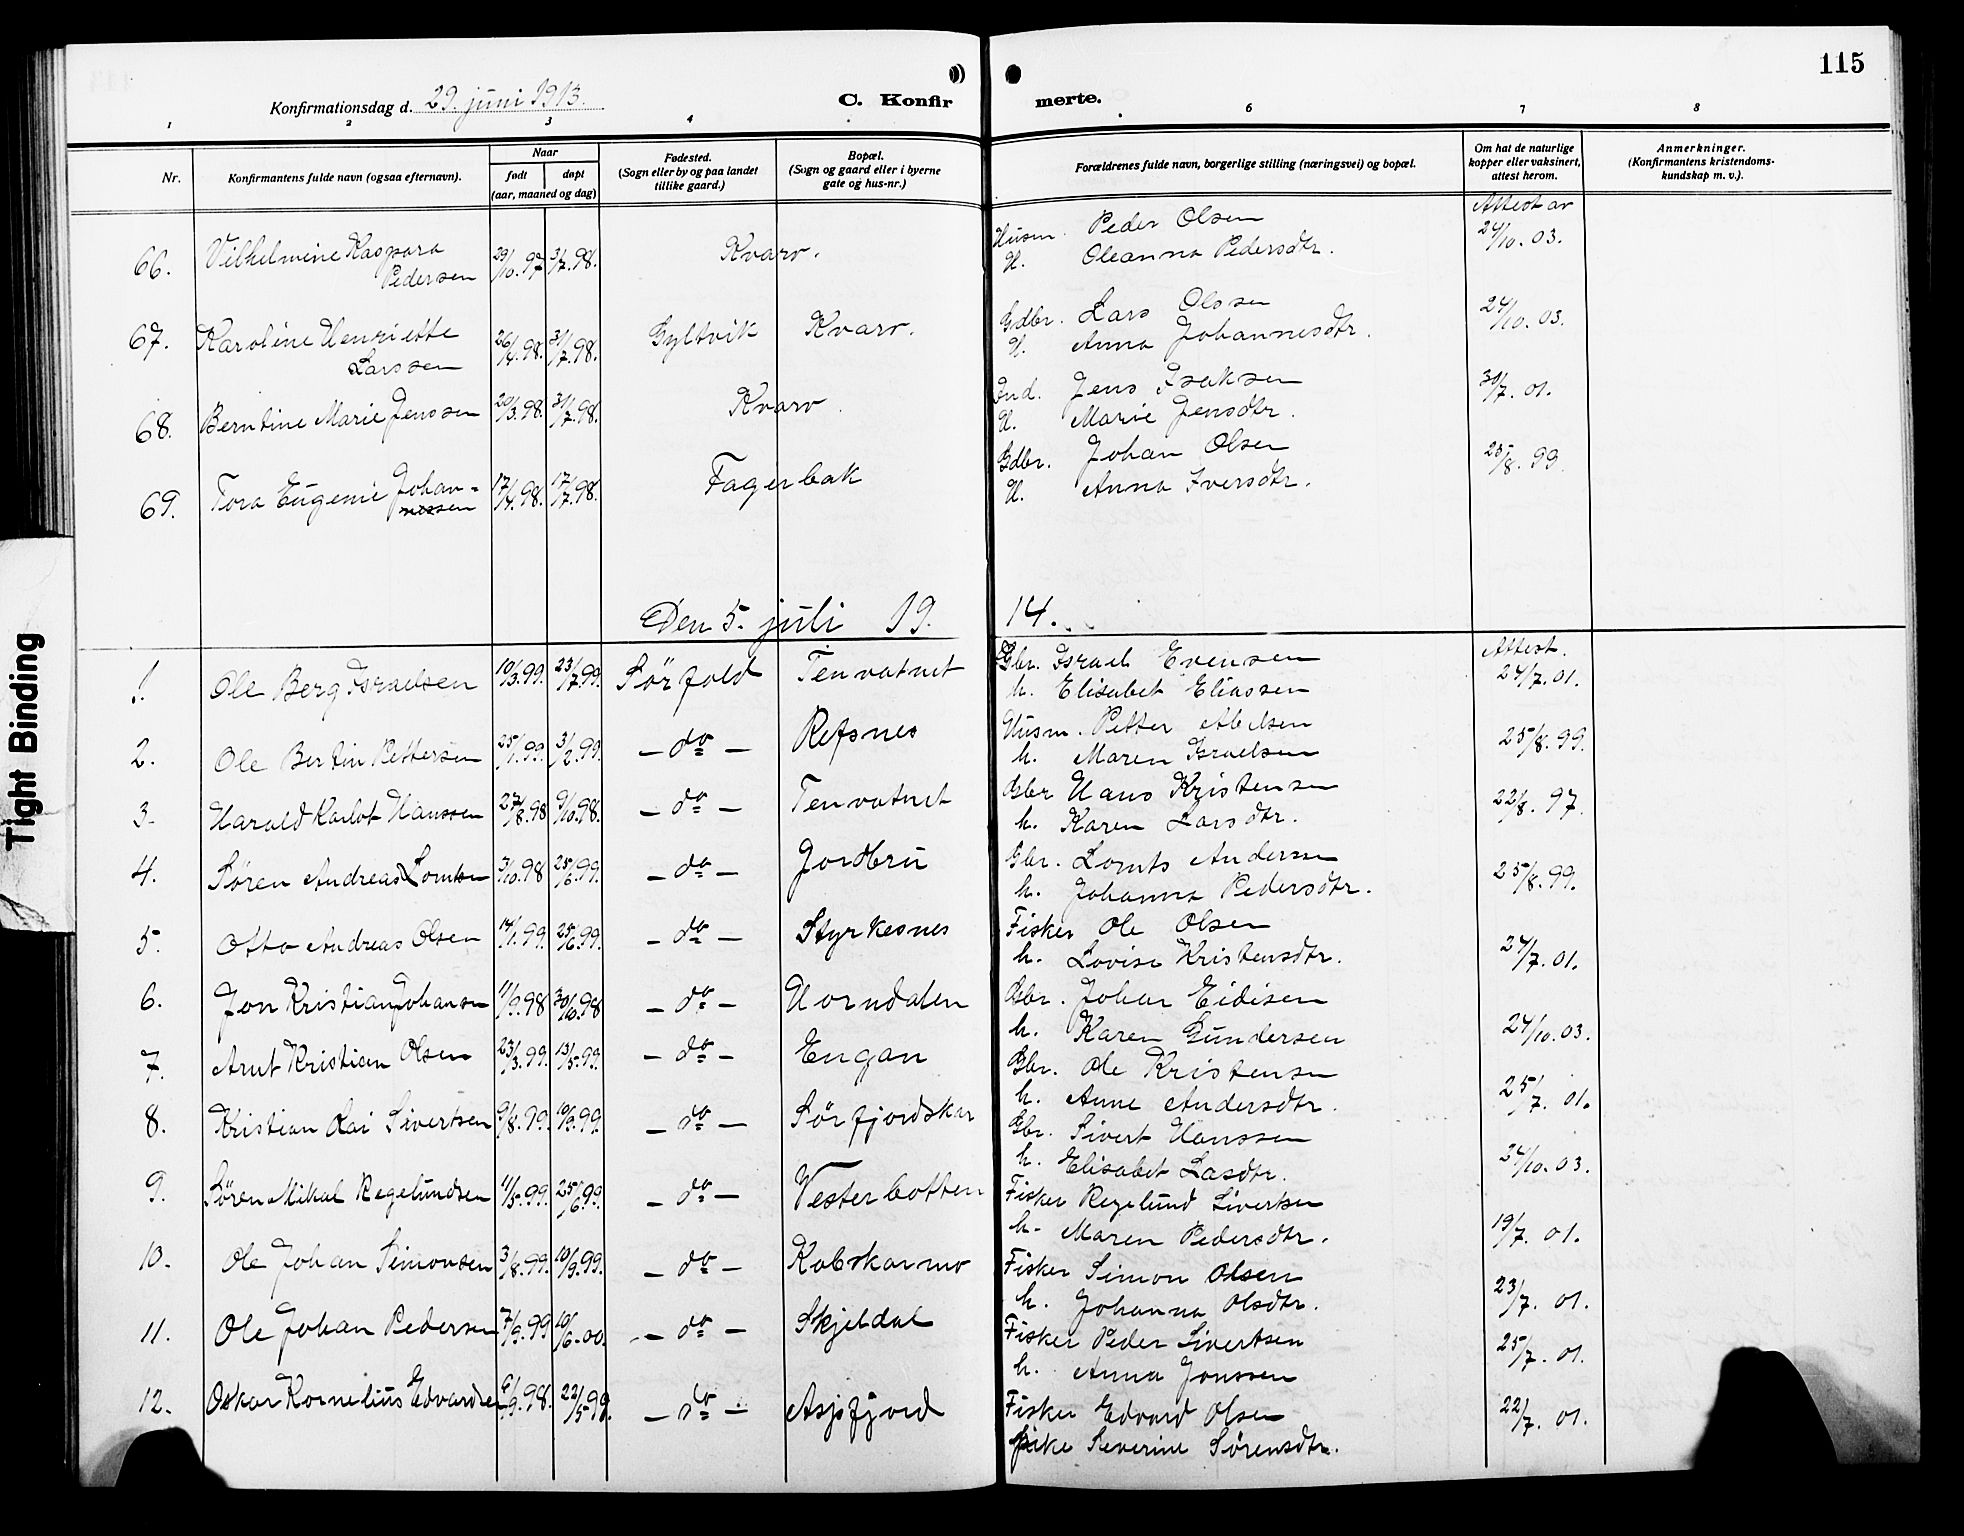 115
Konfirmationsdag d. 29. juni 1913.
C. Konfirmerte.
1 2 3 4 6 7 8
Nr.
Konfirmantens fulde navn (ogsaa efternavn).
Naar
født døpt
(aar, maaned og dag)
Fødested.
(Sogn eller by og paa landet
tillike gaard.)
Bopæl.
(Sogn og gaard eller i byerne
gate og hus-nr.)
Forældrenes fulde navn, borgerlige stilling (næringsvei) og bopæl.
Om hat de naturlige
kopper eller vaksinert,
attest herom.
Anmerkninger.
(Konfirmantens kristendoms-
kundskap m. v.).
Attest av
66. Vilhelmine Kaspara 29/10.97 31/7.98. Kvarv. Husm. Peder Olsen 24/10.03.
Pedersen H. Oleanna Pedersdtr.
67. Karoline Henriette 26/4.98. 31/7.98. Gyltvik Kvarv. Gdbr. Lars Olssen 24/10.03.
Larssen H. Anna Johannesdtr.
68. Berntine Marie Jenssen 20/3.98. 31/7.98. Kvarv. Ind. Jens Isaksen 30/7.01.
H. Marie Jensdtr.
69. Tora Eugenie Johan- 17/4.98. 17/7.98. Fagerbak Gdbr. Johan Olsen 25/8.99.
nessen H. Anna Iversdtr.
Den 5. juli 1914.
Attest.
1. Ole Berg Israelsen 10/3.99. 23/7.99. Sörfold Tenvatnet Gbr. Israel Evensen 24/7.01.
h. Elisabet Eliassen
2. Ole Bertin Pettersen 25/1.99. 3/2.99. - do - Refsnes Husm. Petter Abelsen 25/8.99.
h. Maren Israelsen
3. Harald Karlot Hanssen 27/8.98 9/10.98. - do - Tenvatnet Gbr Hans Kristensen 22/8.97.
h. Karen Larsdtr.
4. Søren Andreas Lomtsen 7/10.98 25/6.99. - do - Jordbru Gbr. Lomts Andersen 25/8.99.
h. Johanna Pedersdtr.
5. Otto Andreas Olsen 14/1.99. 25/6.99. - do - Styrkesnes Fisker Ole Olsen 24/7.01.
h. Lovise Kristensdtr.
6. Jon Kristian Johansen 11/9.98 30/10.98 - do - Horndalen Gbr. Johan Eidisen 24/10.03.
h. Karen Gundersen
7. Arnt Kristian Olsen 23/3.99. 13/5.99. - do - Engan Gbr. Ole Kristensen 25/7.01.
h. Anne Andersdtr.
8. Kristian Kai Sivertsen 9/8.99. 10/9.99. - do - Sörfjordskar Gbr. Sivert Hanssen 24/10.03.
h. Elisabet Lasdtr.
9. Søren Mikal Regelundsen 11/5.99. 25/6.99. - do - Vesterbotten Fisker Regelund Sivertsen 19/7.01.
h. Maren Pedersdtr.
10. Ole Johan Simonsen 3/8.99. 10/9.99. - do - Kobskarmo Fisker Simon Olsen 23/7.01.
h. Johanna Olsdtr.
11. Ole Johan Pedersen 7/9.99 10/6.00. - do - Skjeldal Fisker Peder Sivertsen 25/7.01.
h. Anna Jonssen
12. Oskar Kornelius Edvardsen 6/9.98. 22/5.99. - do - Asjsfjord Fisker Edvard Olsen 22/7.01.
pike Severine Sörensdtr.
Tight Binding